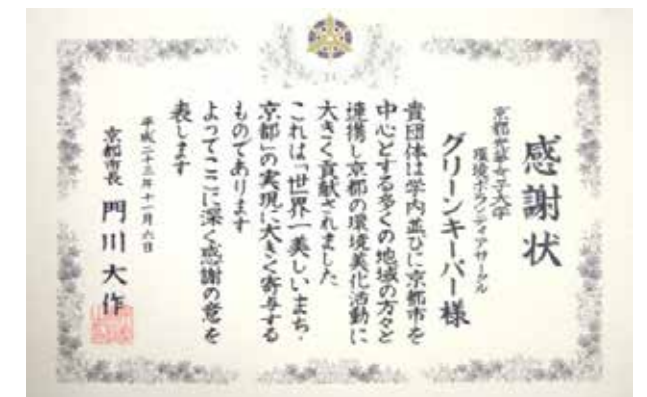 感謝状
京都光華女子大学
環境ボランティアサークル
グリーンキーパー様
貴団体は学内並びに京都市を
中心とする多くの地域の方々と
連携し京都の環境美化活動に
大きく貢献されました
これは「世界一美しいまち・
京都」の実現に大きく寄与する
ものであります
よってここに深く感謝の意を
表します
平成二十三年十一月六日
京都市長 門川大作